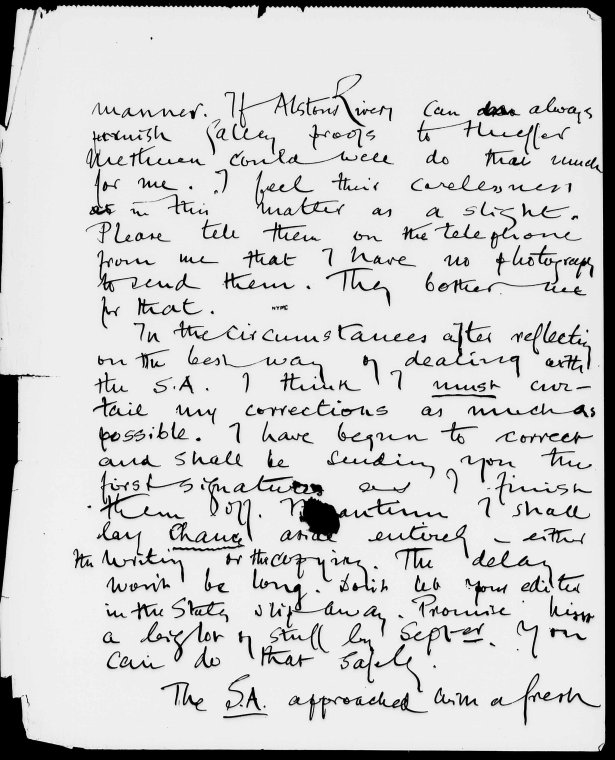 manner. If Alston Rivers can always
furnish galley proofs to Hueffer
Methuen could well do that much
for me. I feel their carelessness
in this matter as a slight.
Please tell them on the telephone
from me that I have no photograph
to send them. They bother me
for that.
In the circumstances after reflecting
on the best way of dealing with
the S.A. I think I must cur-
tail my corrections as much as
possible. I have begun to correct
and shall be sending you the
first signatures as I finish
them off. Meantime I shall
lay Chance aside entirely - either
the writing or the copying. The delay
won't be long. Don't let your editor
in the States slip away. Promise him
a big lot of stuff by Septer. You
can do that safely.
The S.A. approached with a fresh